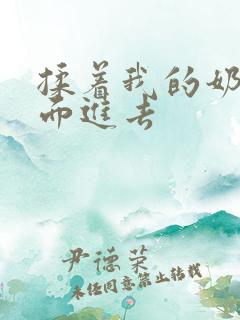 揉着我的奶
而进去
尹德荣
未经同意禁止转载